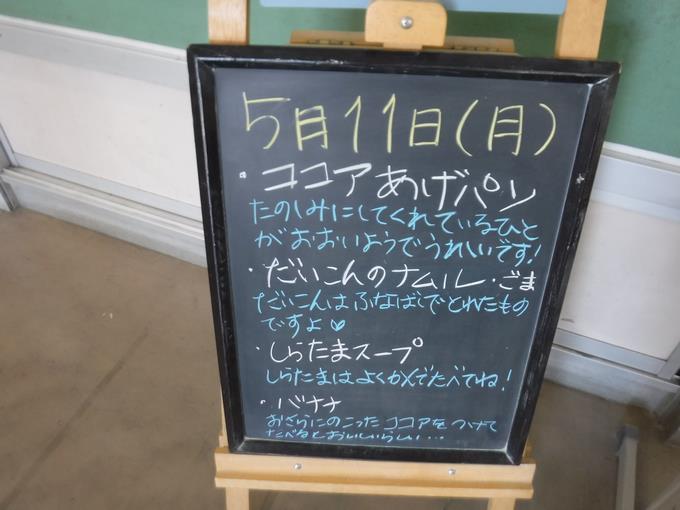 5月11日(月)
・ココアあげパン
たのしみにしてくれているひと
がおおいようでうれしいです!
・だいこんのナムル・ごま
だいこんはふなばしでとれたもの
ですよ♥
・しらたまスープ
しらたまはよくかんでたべてね!
・バナナ
おさらにのこったココアをつけて
たべるとおいしいらしい…